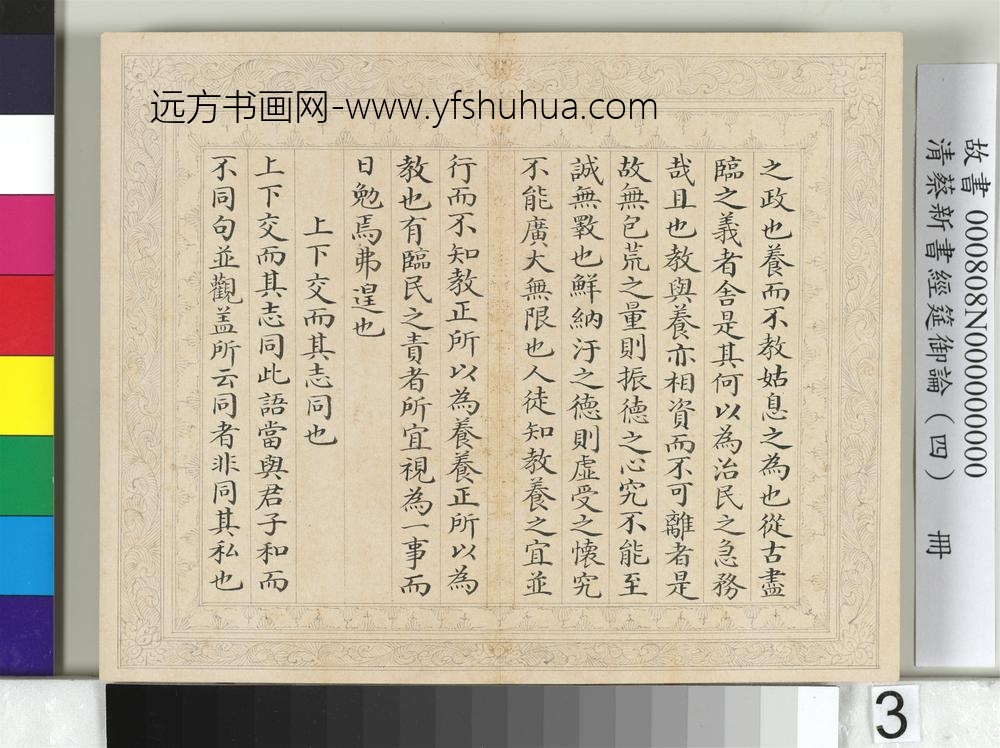 远方书画网-www.yfshuhua.com
之政也養而不教姑息之為也從古盡
臨之義者舍是其何以為治民之急務
哉且也教與養亦相資而不可離者是
故無包荒之量則振德之心究不能至
誠無斁也鮮納汙之德則虛受之懷究
不能廣大無限也人徒知教養之宜並
行而不知教正所以為養養正所以為
教也有臨民之責者所宜視為一事而
日勉焉弗遑也
上下交而其志同也
上下交而其志同此語當與君子和而
不同句並觀盖所云同者非同其私也
故書 000808N000000000
清蔡新書經筵御論（四） 冊
3